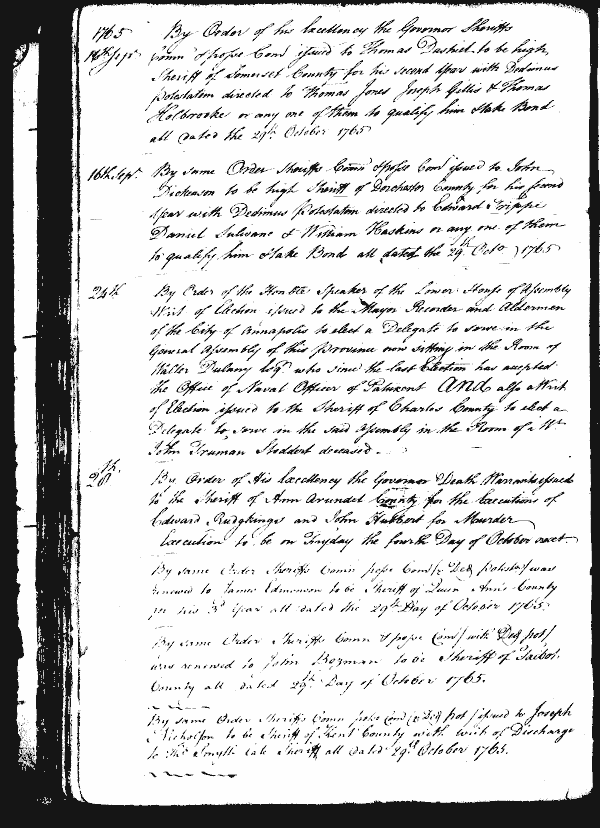 1765 By Order of his Excellency the Governor Sheriffs
16th Sepr. Comn & posse Com issued to Thomas Dashiel to be high
Sheriff of Somerset County for his second Year with Dedimus
potestatem directed to Thomas Jones Joseph Gillis & Thomas
Holbrooke or any one of them to qualify him & take Bond
all dated the 29th October 1765
16th Sept. By same Order Sheriffs Comn & posse Com issued to John
Dickenson to be high Sheriff of Dorchester County for his second
Year with Dedimus Potestatem directed to Edward Trippe
Daniel Sulivane & William Haskins or any one of them
to qualify him & take Bond all dated the 29th Octo. 1765
24th By Order of the Honble Speaker of the Lower House of Assembly
Writ of Election issued to the Mayor Recorder and Alderman
of the City of Annapolis to elect a Delegate to serve in the
General Assembly of this Province now sitting in the Room of
Walter Dulany Esqr. who since the last Election has accepted
the Office of Naval Officer of Patuxent And also a Writ
of Election issued to the Sheriff of Charles County to elect a
Delegate to serve in the said Assembly in the Room of a Mr.
John Truman Stoddert deceased.
28th. By Order of His Excellency the Governor Death Warrants issued
to the Sheriff of Ann Arundel County for the Executions of
Edward Rudgkings and John Hubbert for Murder
Execution to be on Fryday the fourth Day of October next
By same Order Sheriffs Comn posse Com & Ded potestat was
renewed to James Edmonson to be Sheriff of Queen Anns County
for his 3d Year all dated the 29th Day of October 1765.
By same Order Sheriffs Comn & posse Com with Ded pot
was renewed to John Bozman to be Sheriff of Talbot
County all dated 29th Day of October 1765.
By same Order Sheriffs Comn posse Com & Ded pot issued to Joseph
Nicholson to be Sheriff of Kent County with writ of Discharge
to Thos Smyth late Sheriff all dated 29th October 1765.